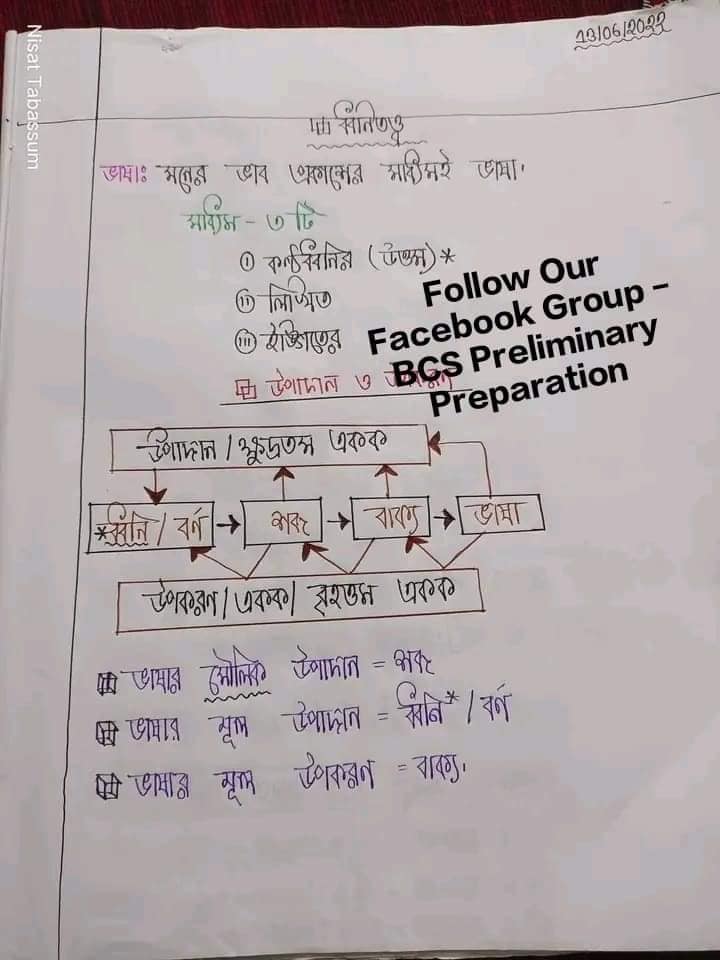 Nisat Tabassum
13/06/2022
ধ্বনিতত্ত্ব
ভাষাঃ মনের ভাব প্রকাশের মাধ্যমই ভাষা।
মাধ্যম - ৩ টি
(i) কণ্ঠধ্বনির (উত্তম)*
(ii) লিখিত
(iii) ইঙ্গিতের
Follow Our
Facebook Group -
BCS Preliminary
Preparation
উপাদান ও উপকরণ
উপাদান / ক্ষুদ্রতম একক
*ধ্বনি / বর্ণ → শব্দ → বাক্য → ভাষা
উপকরণ / একক / বৃহত্তম একক
ভাষার মৌলিক উপাদান = শব্দ
ভাষার মূল উপাদান = ধ্বনি* / বর্ণ
ভাষার মূল উপকরণ = বাক্য।